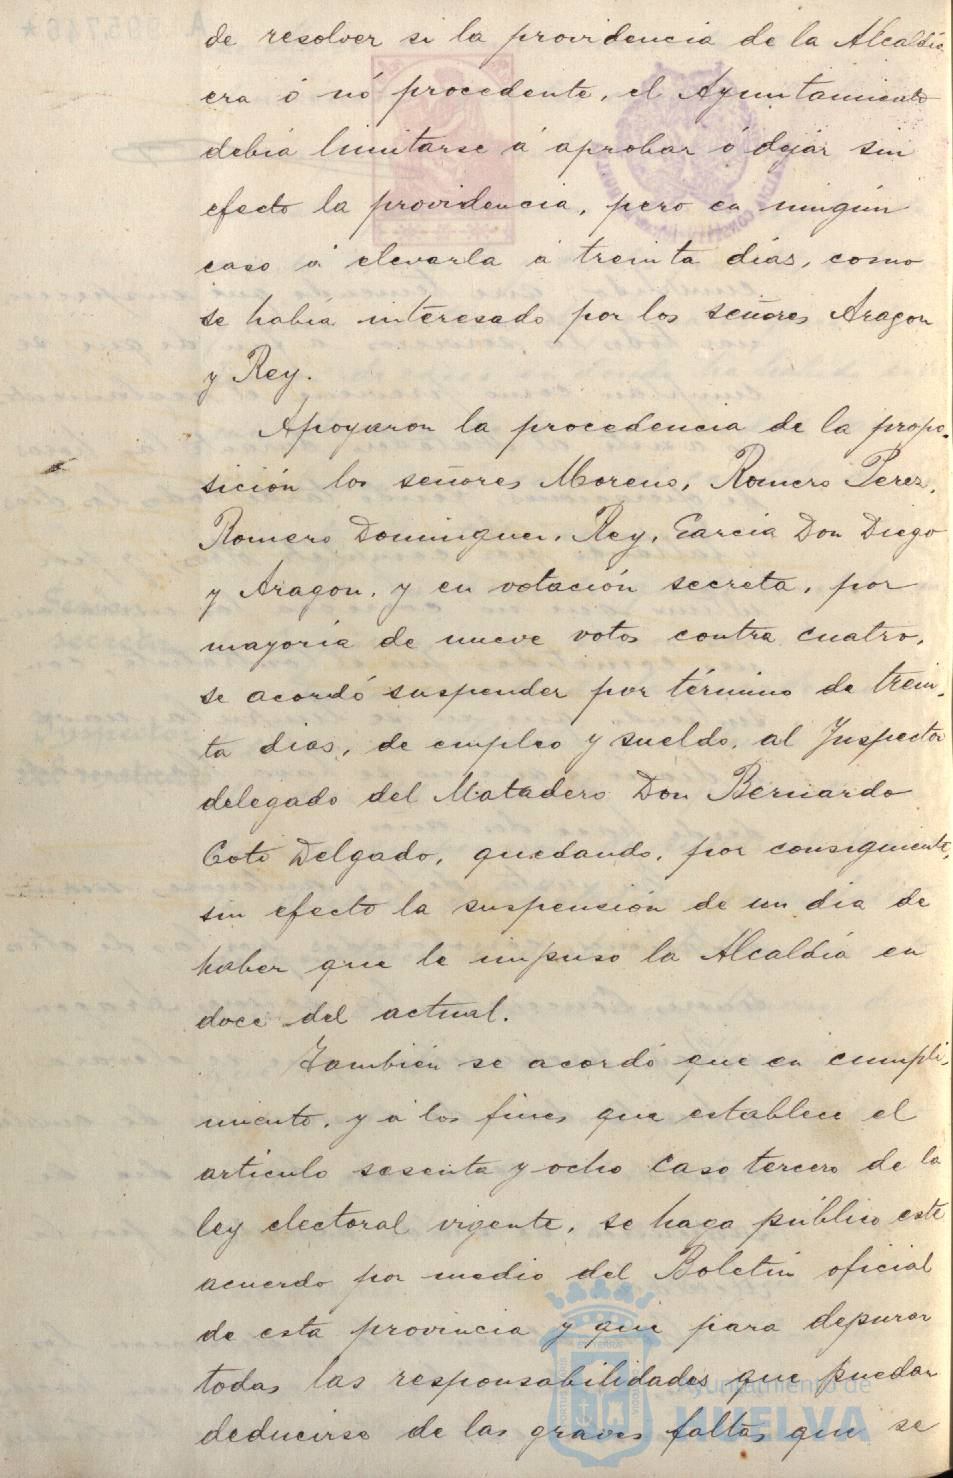 de resolver si la providencia de la Alcaldía
era ó nó procedente, el Ayuntamiento
debia limitarse á aprobar ó dejár sin
efecto la providencia, pero en ningún
caso á elevarla á treinta días, como
se había interesado por los señores Aragon
y Rey.
Apoyaron la procedencia de la propo-
sición los señores Moreno, Romero Perez,
Romero Dominguez, Rey, Garcia Don Diego
y Aragon, y en votación secreta, por
mayoría de nueve votos contra cuatro,
se acordó suspender por término de trein-
ta dias, de empleo y sueldo, al Inspector
delegado del Matadero Don Bernardo
Coto Delgado, quedando, por consiguiente,
sin efecto la suspensión de un dia de
haber que le impuso la Alcaldía en
doce del actual.
También se acordó que en cumpli-
miento, y á los fines que establece el
artículo sesenta y ocho caso tercero de la
ley electoral vigente, se haga público este
acuerdo por medio del Boletin oficial
de esta provincia y que para depurar
todas las responsabilidades que puedan
deducirse de las graves faltas que se
Ayuntamiento de
HUELVA